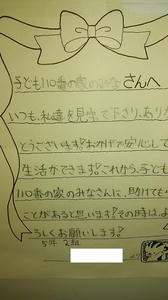 子ども110番の家のみなさんへ
いつも、私達を見守って下さり、ありが
とうございます!おかげで安心して
生活ができます!これから、子ども
110番の家のみなさんに、助けてもらう
ことがあると思います!その時は、よ
ろしくお願いします!
5年2組
より